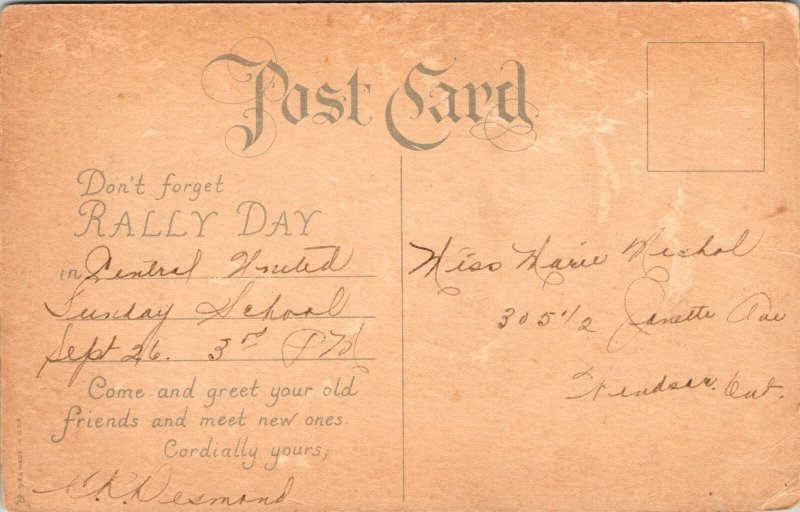 Post Card
Don't forget
RALLY DAY
in Central United
Sunday School
Sept 26. 3rd PM
Come and greet your old
friends and meet new ones.
Cordially yours,
Desmond
Miss Marie Nichol
305 1/2 Janette Ave
Windsor. Ont.
MADE IN U.S.A.